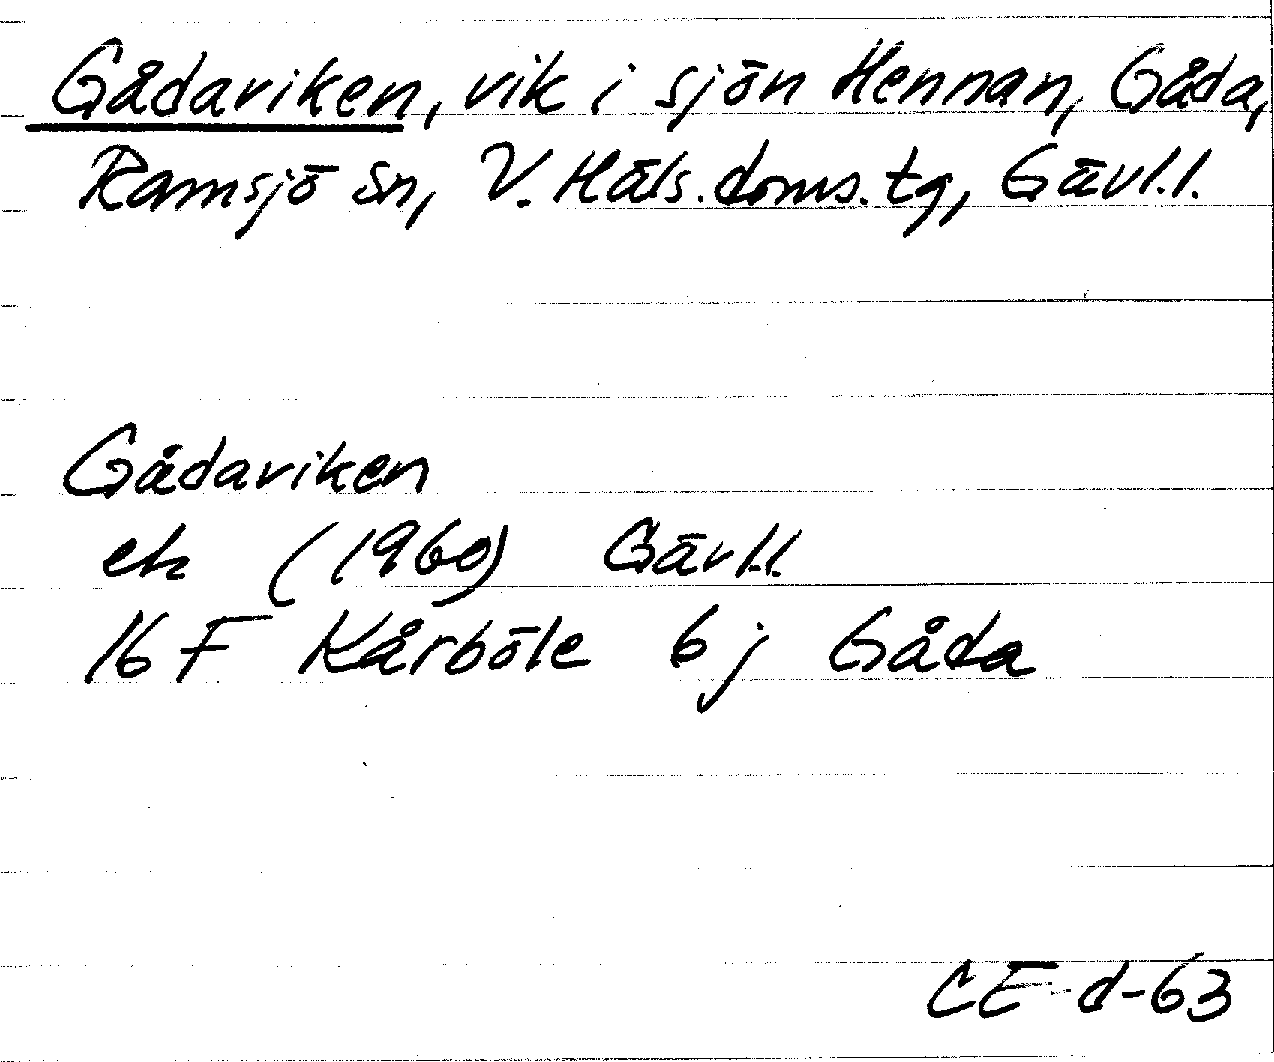 Gådaviken, vik i sjön Hennan, Gåda,
Ramsjö sn, V. Häls. doms. tg, Gävl.l.
Gådaviken
ek (1960) Gävl.l.
16 F Kårböle 6 j Gåda
CE-d-63